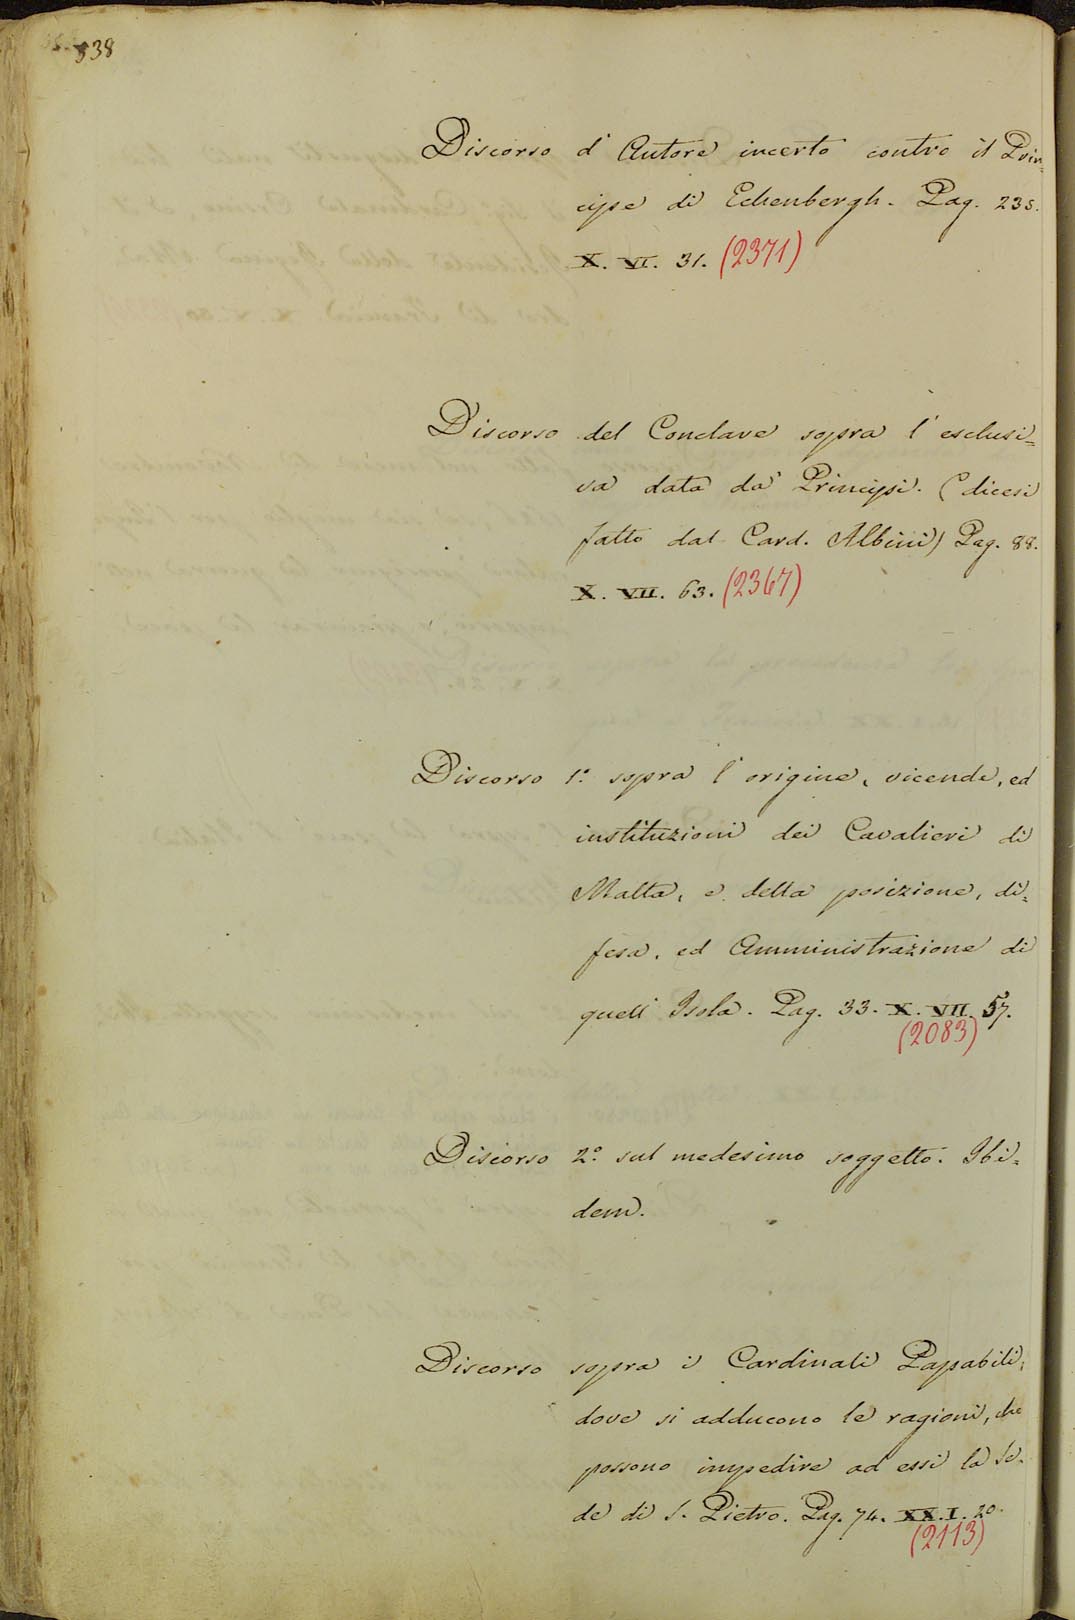 338
Discorso d' Autore incerto contro il Prin=
cipe di Echenbergh. Pag. 235.
X. VI. 31. (2371)
Discorso del Conclave sopra l' esclusi=
va data da' Principi. (dicesi
fatto dal Card. Albini) Pag. 88.
X. VII. 63. (2367)
Discorso 1.º sopra l' origine, vicende, ed
instituzioni dei Cavalieri di
Malta, e della posizione, di=
fesa, ed Amministrazione di
quell' Isola. Pag. 33. X. VII. 57.
(2083)
Discorso 2.º sul medesimo soggetto. Ibi=
dem.
Discorso sopra i Cardinali Papabili,
dove si adducono le ragioni, che
possono impedire ad essi la Se=
de di S. Pietro. Pag. 74. XX. I. 20.
(2113)